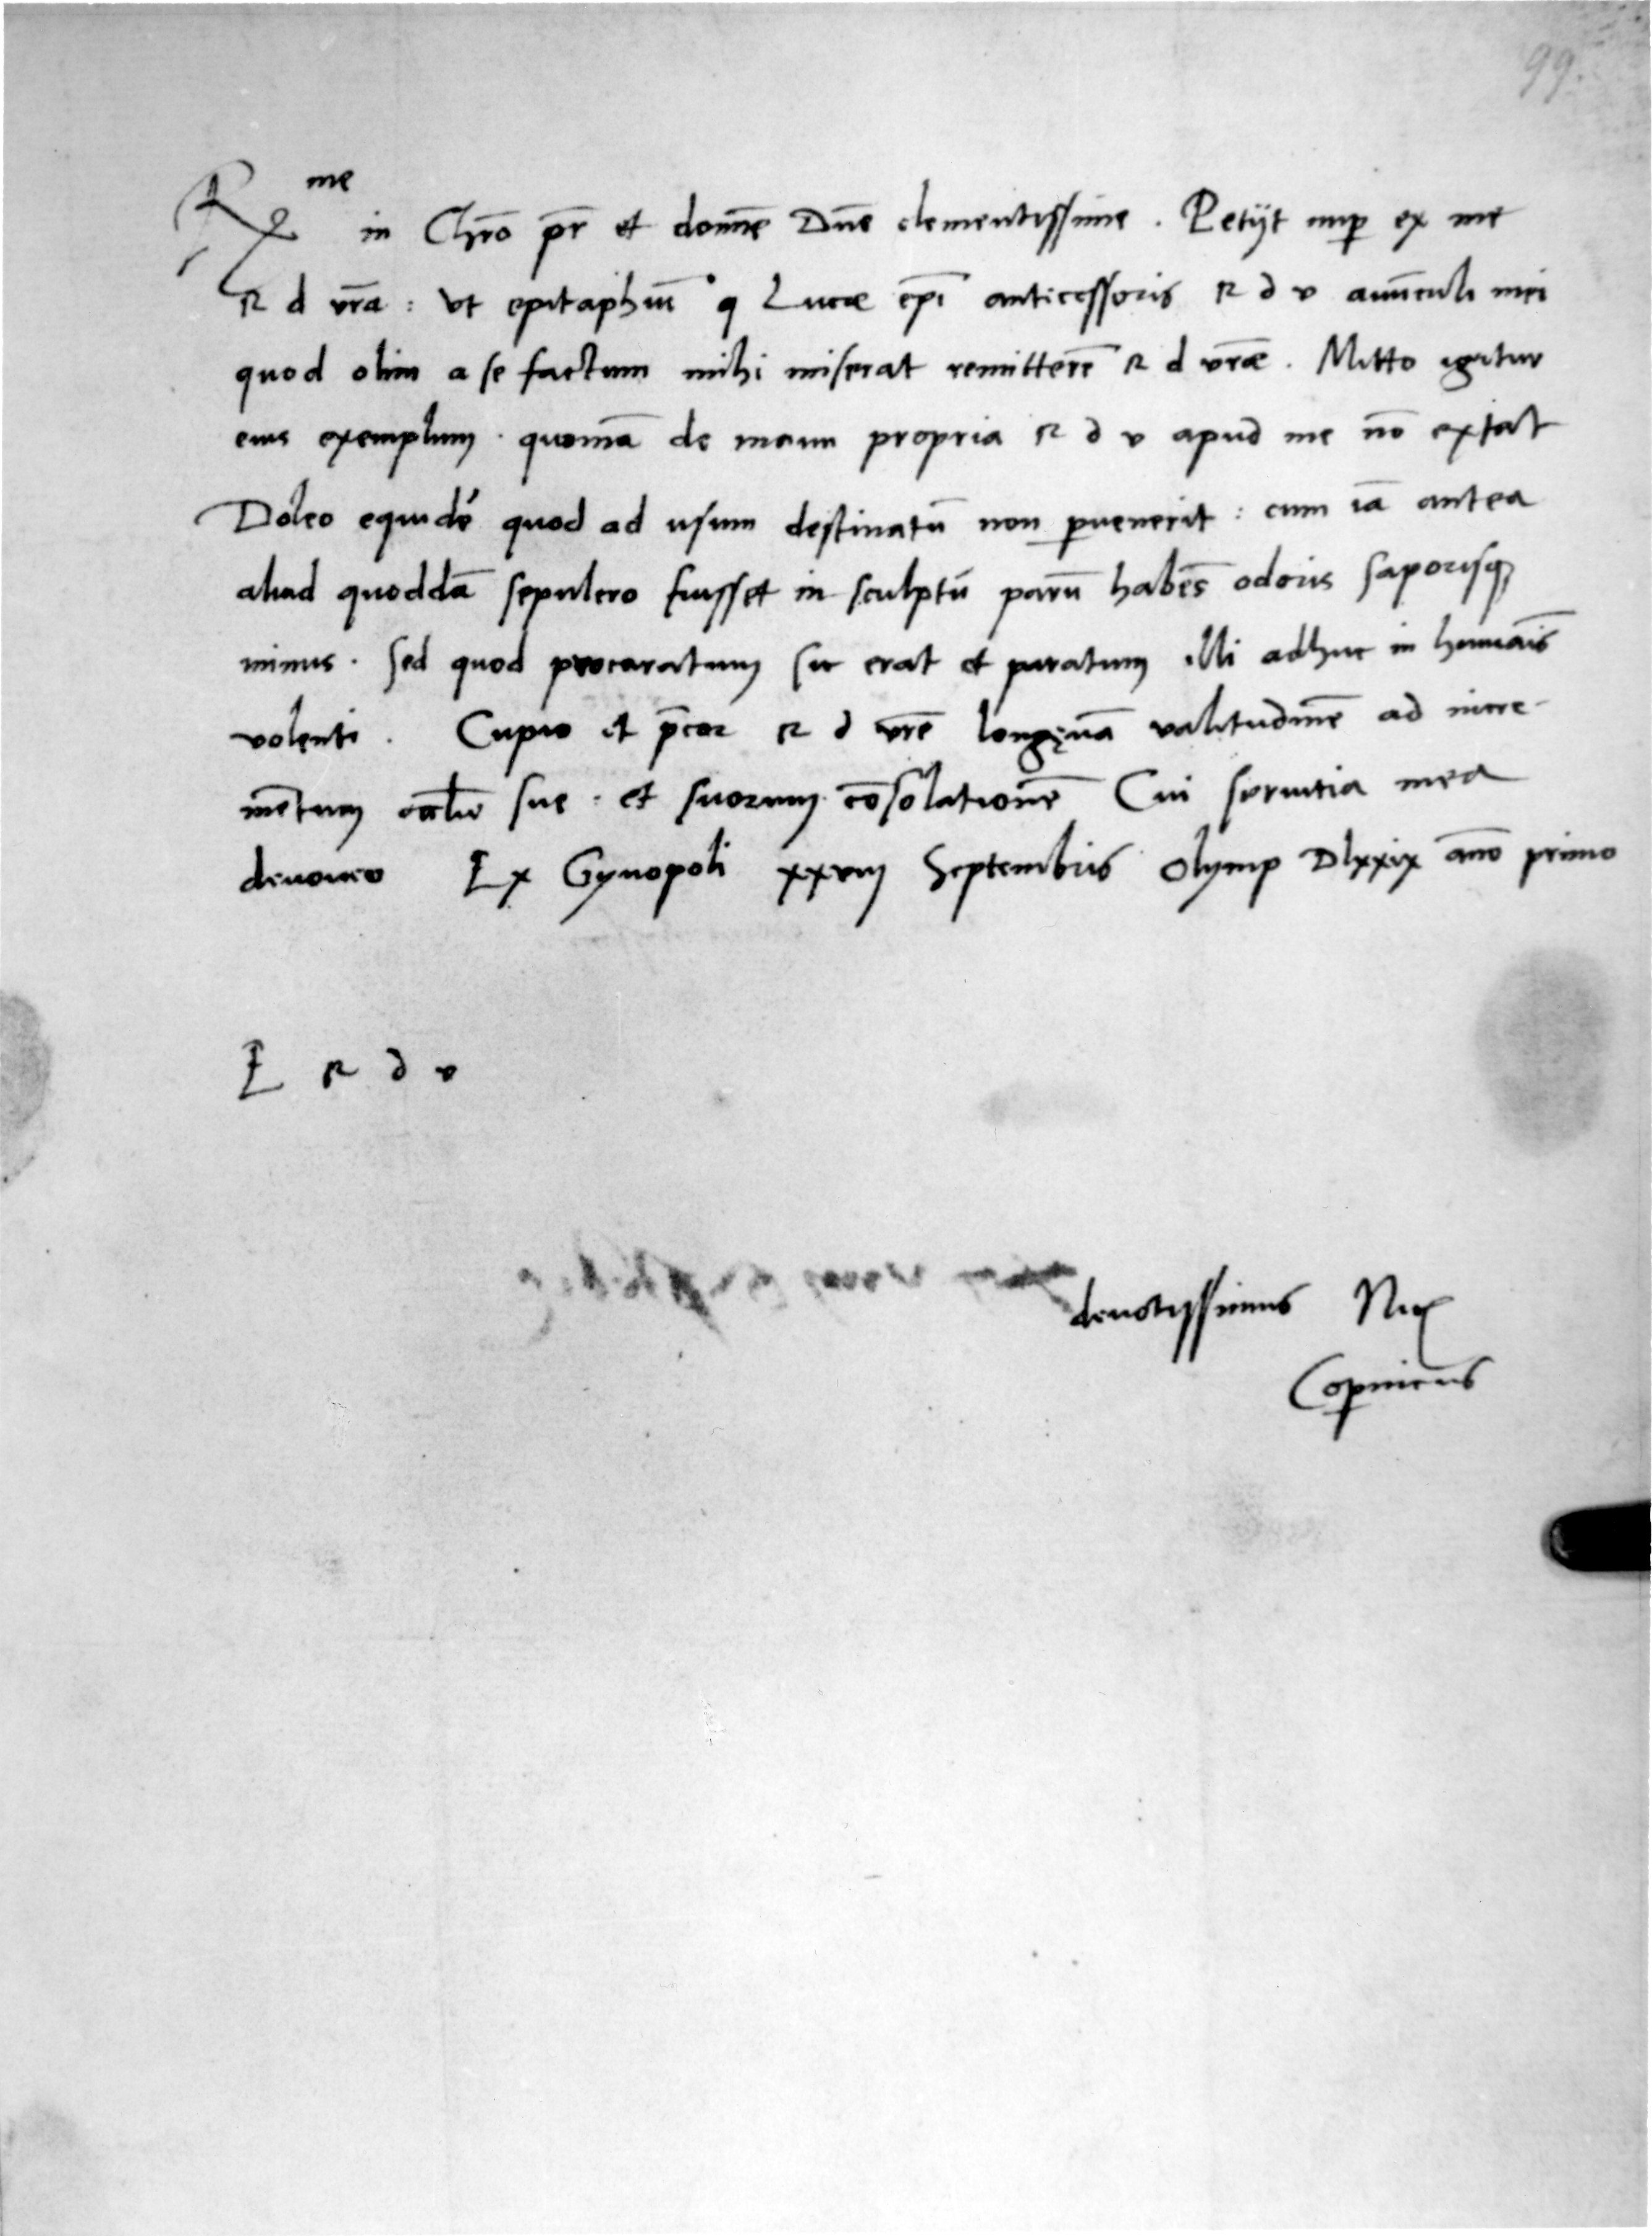 99.
R me in Chr̄o pr̄ et domn̄e Dn̄e clementissime . Petijt nup̱ ex me
R d vr̄a : vt epitaphiū q° Lucæ ep̄i anticessoris R d v auūculi mei
quod olim a se factum mihi miserat remitterē R d vr̄æ . Mitto igitur
eius exemplum . quoniā de manu propria R d v apud me nō extat
Doleo equidē quod ad usum destinatū non p̱uenerit : cum iā antea
aliud quoddā sepulcro fuisset in sculptū parū habēs odoris saporisq
minus . sed quod procuratum sic erat et paratum illi adhuc in humāis
volenti . Cupio et p̄cor R d vr̄e longęuā valitudinē ad incre-
mētum eccl̄ie sue . et suorum cōsolationē Cui seruitia mea
deuoueo Ex Gynopoli xxvij Septembris Olymp Dlxxix an̄o primo
E R d v
deuotissimus Nic
Cop̱nicus